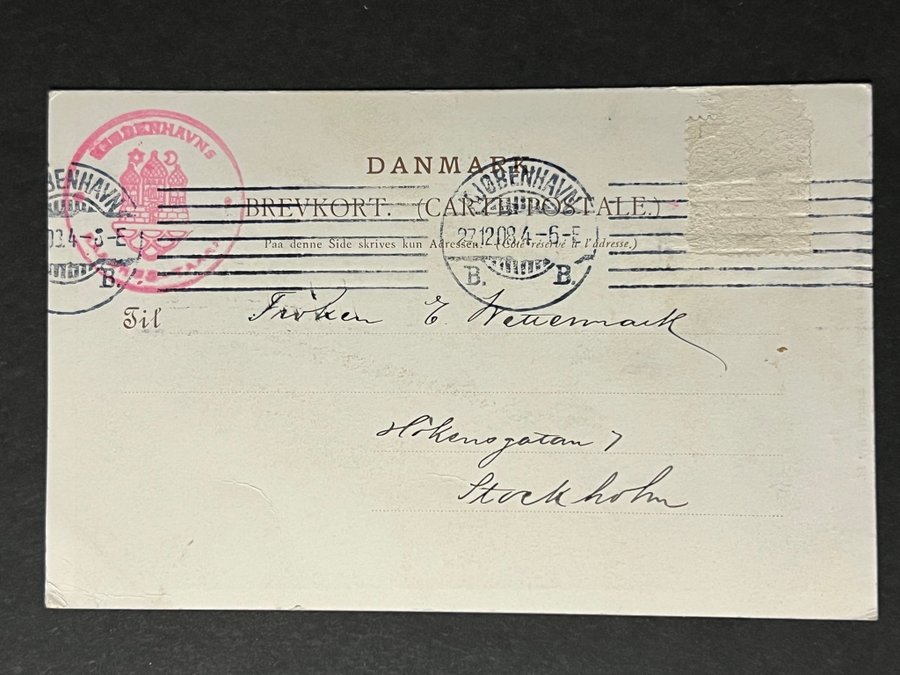 KJØBENHAVNS
DANMARK
BREVKORT. (CARTE POSTALE.)
Paa denne Side skrives kun Adressen. (Côté réservé à l'adresse.)
KJØBENHAVN
KJØBENHAVN
03.4-5-E
27.12.03.4-6-E
B.
B. B.
Til Fröken E. Wettermark
Hökensgatan 7
Stockholm